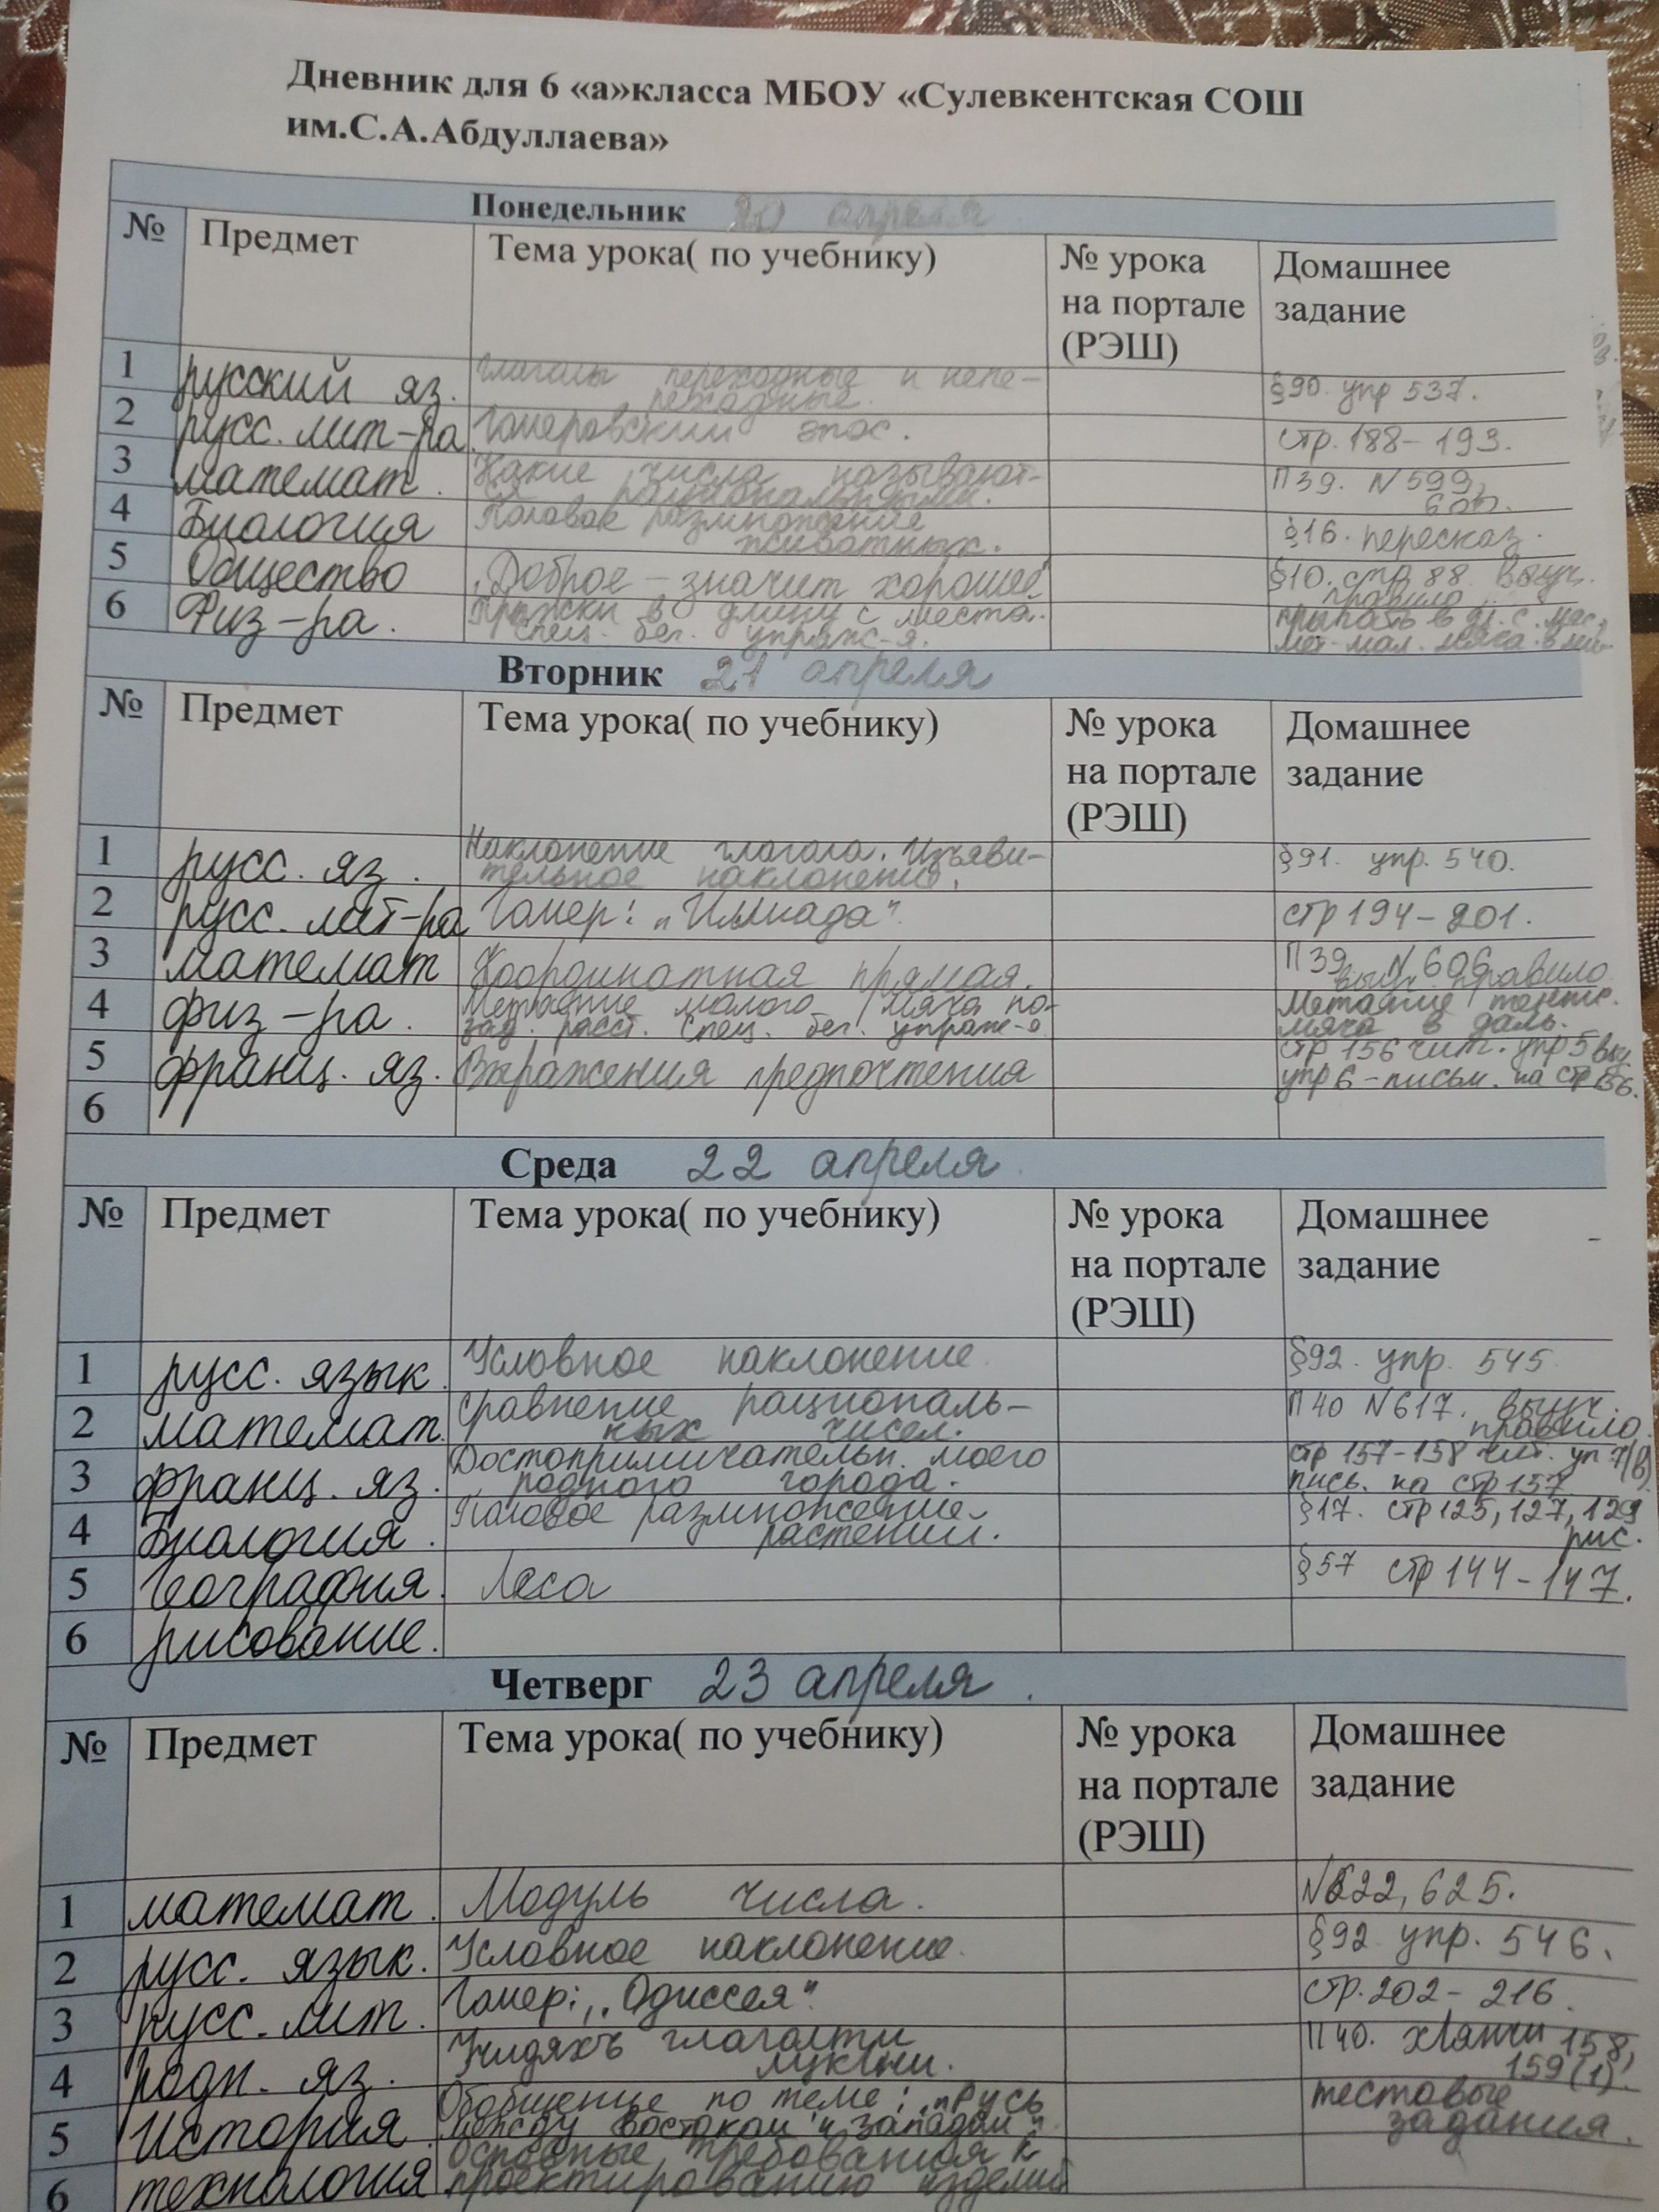 Дневник для 6 «а»класса МБОУ «Сулевкентская СОШ
им.С.А.Абдуллаева»
Понедельник 20 апреля
№ Предмет Тема урока( по учебнику) № урока Домашнее
на портале задание
(РЭШ)
1 русский яз. Глаголы переходные и непе-
реходные. §90. упр 537.
2 русс. лит-ра Гомеровский эпос. стр. 188-193.
3 математ. Какие числа называют- П39. N 599,
ся рациональными. 600.
4 Биология Половое размножение
животных. §16. пересказ.
5 Общество „Доброе - значит хорошее" §10. стр 88. выуч.
правило
6 Физ-ра. Прыжки в длину с места. прыгать в дл. с. мес.
спец. бег. упраж-я. мет-мал. мяча.
Вторник 21 апреля
№ Предмет Тема урока( по учебнику) № урока Домашнее
на портале задание
(РЭШ)
1 русс. яз. Наклонение глагола. Изъяви-
тельное наклонение. §91. упр. 540.
2 русс. лит-ра Гомер: „Илиада" стр 194-201.
3 математ Координатная прямая. П39. N 606
выуч. правило
4 физ-ра. Метание малого мяча по- Метание теннис.
зад. расст. спец. бег. упраж-я мяча в даль.
5 франц. яз. Выражения предпочтения стр 156 чит. упр 5 выу.
упр 6-письм. на стр 156.
6
Среда 22 апреля
№ Предмет Тема урока( по учебнику) № урока Домашнее
на портале задание
(РЭШ)
1 русс. язык. Условное наклонение. §92. упр. 545
2 математ. Сравнение рациональ- П40 N617. выуч.
ных чисел. правило.
3 франц. яз. Достопримичательн. моего стр 157-158 чит. уп 7(в)
родного города. пись. на стр 157
4 Биология. Половое размножение §17. стр 125, 127, 129
растений. рис.
5 География. Леса §57 стр 144-147.
6 рисование.
Четверг 23 апреля.
№ Предмет Тема урока( по учебнику) № урока Домашнее
на портале задание
(РЭШ)
1 математ. Модуль числа. N622, 625.
2 русс. язык. Условное наклонение. §92 упр. 546.
3 русс. лит. Гомер: „Одиссея" стр. 202-216.
4 родн. яз. глаголти П40. хӀянчи 158,
лукӀни. 159(1).
5 История. Обобщение по теме: „Русь тестовые
между востоком и западом". задания.
6 технология Основные требования к
проектированию изделий